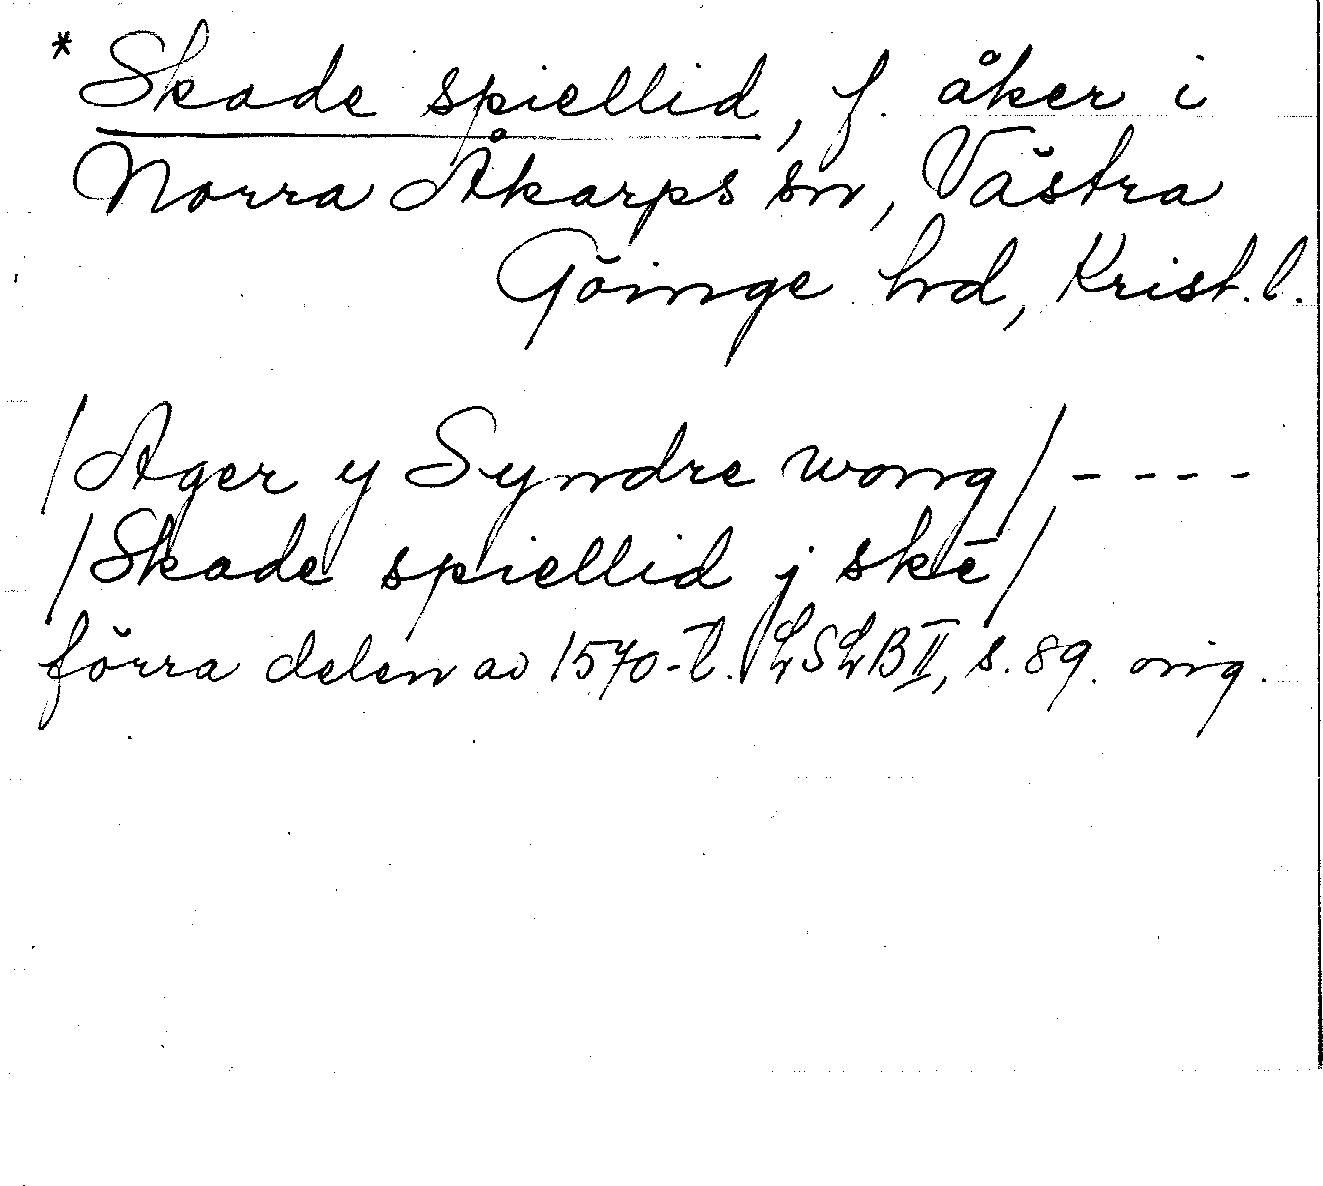 * Skade spiellid, f. åker i
Norra Åkarps sn, Västra
Göinge hd, Krist. l.
/Ager y Syndre wong/ - - - -
/Skade spiellid j skē/
förra delen av 1570-t. LSLB II, s. 89. orig.